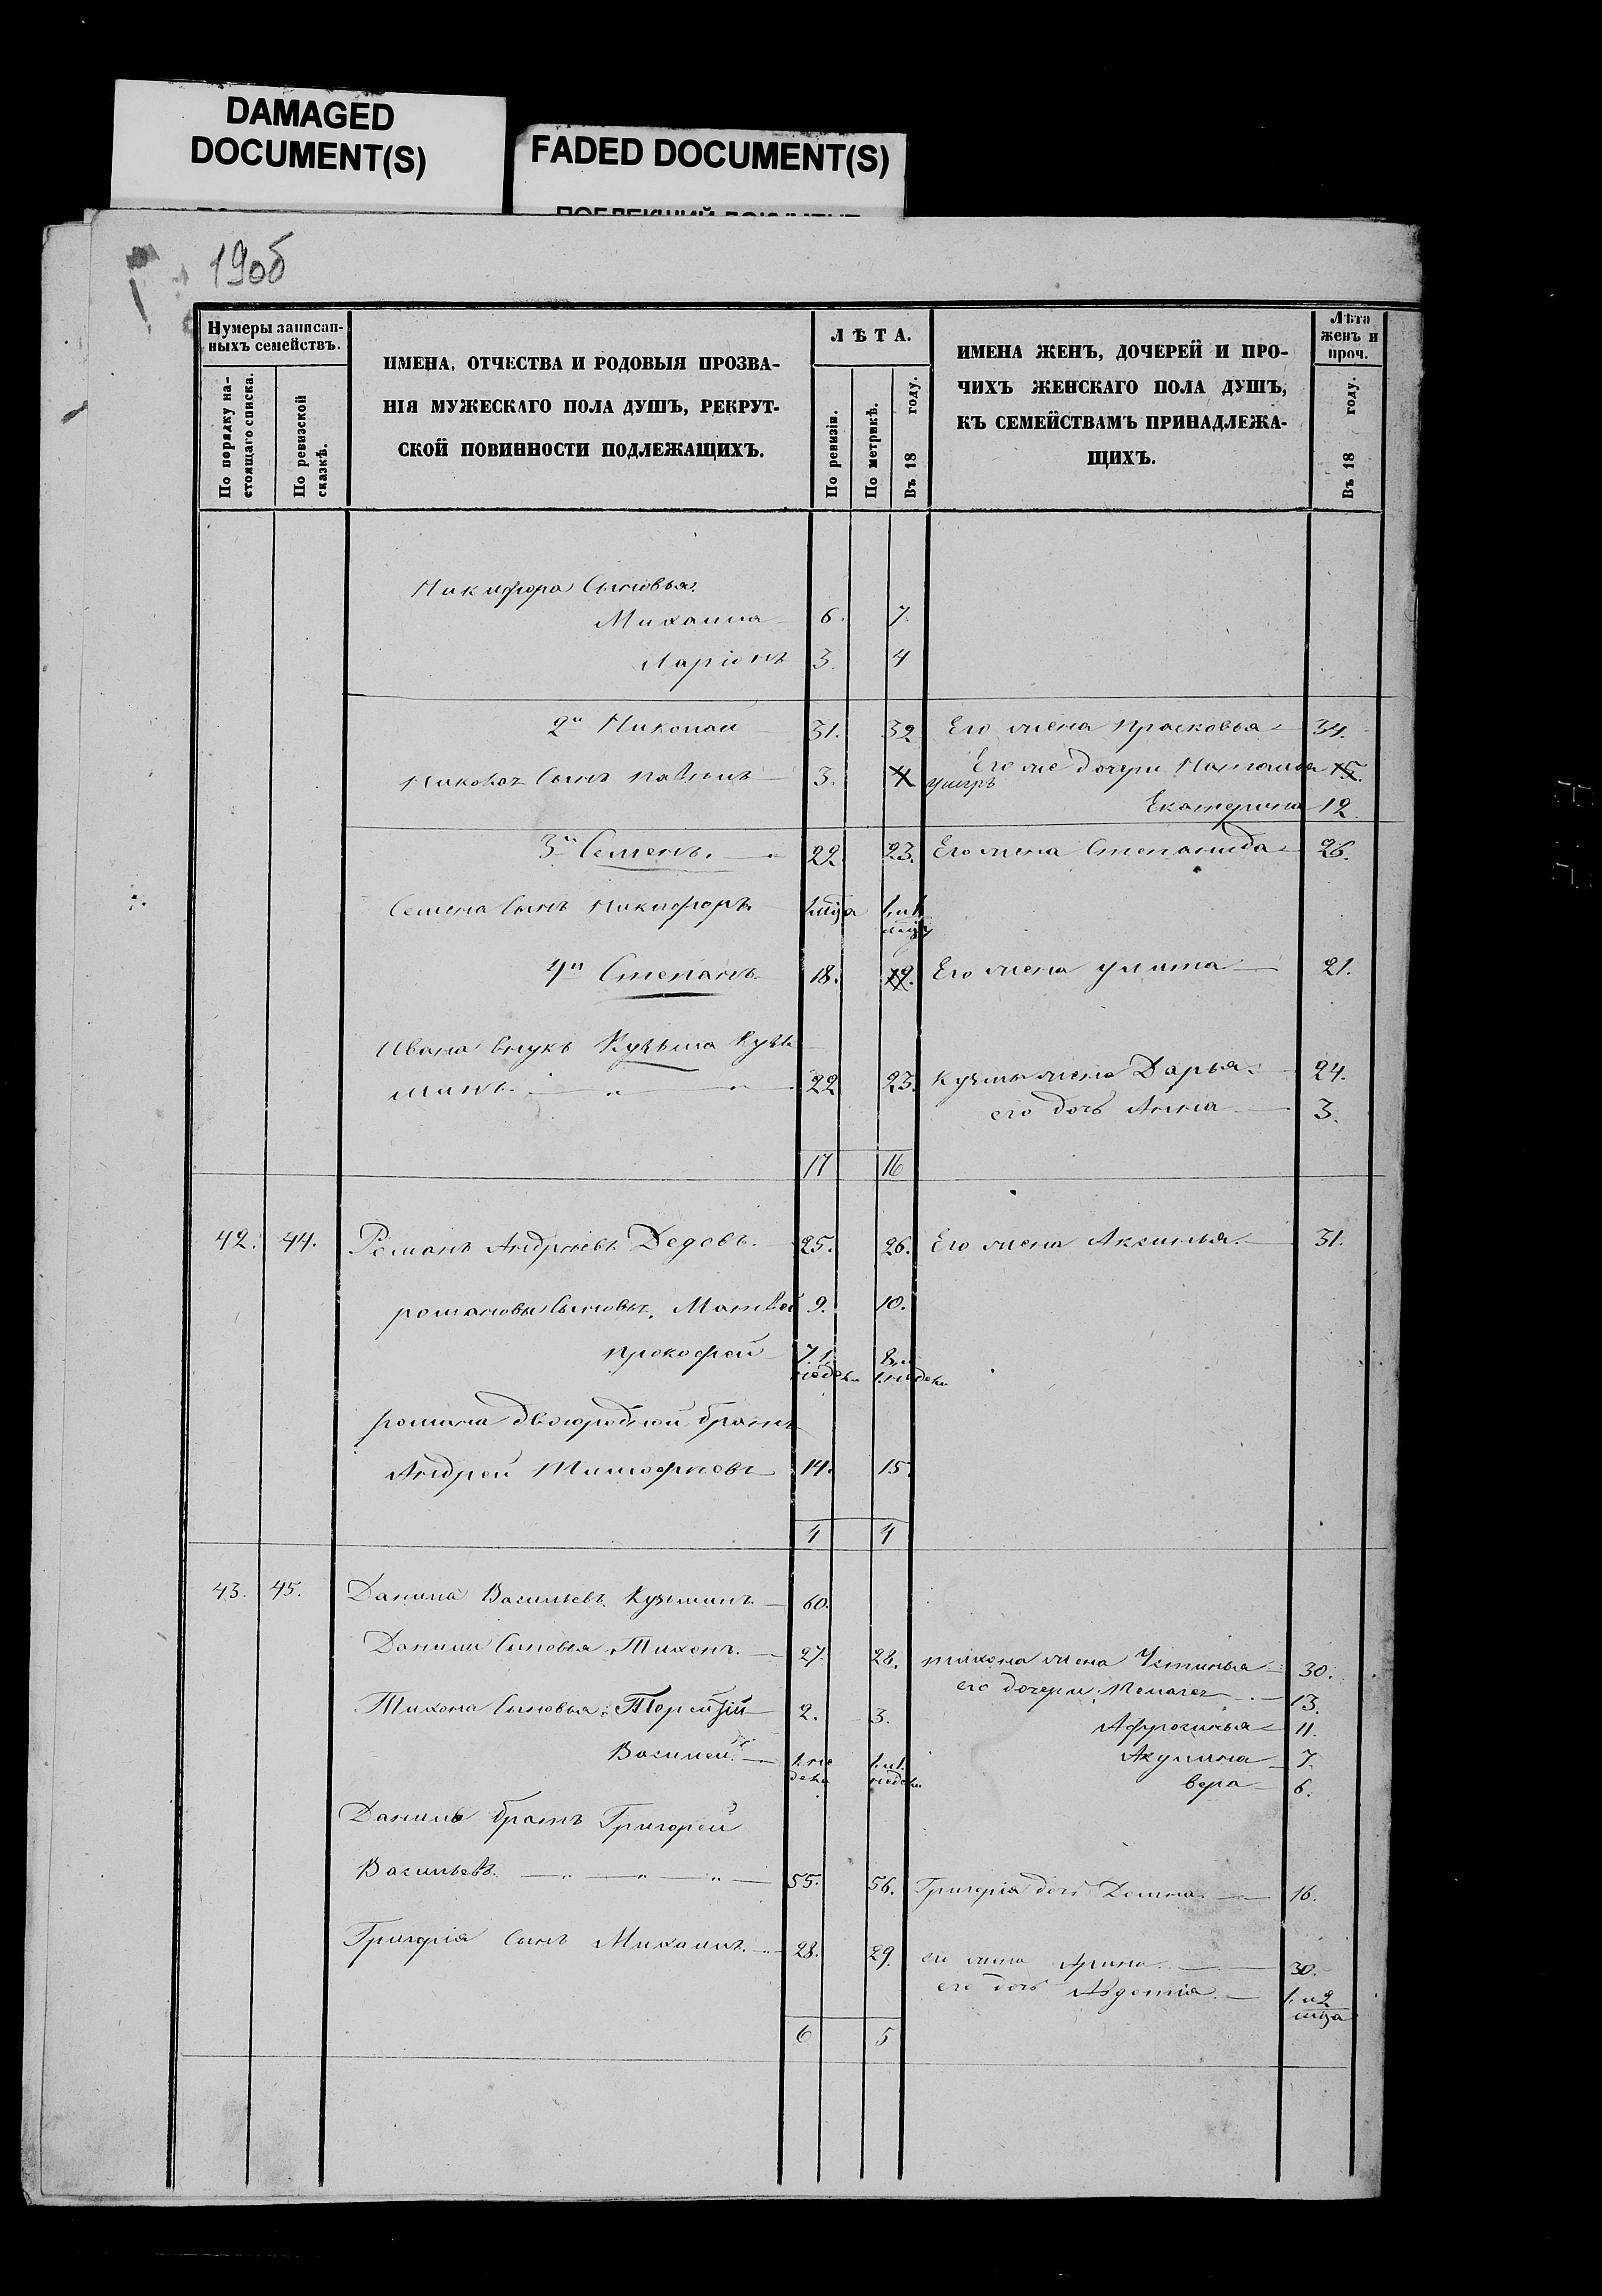 DAMAGED
DOCUMENT(S)
FADED DOCUMENT(S)
19об
Нумеры записан-
ныхъ семействъ.
По порядку на-
стоящаго списка.
По ревизской
сказкѣ.
ИМЕНА, ОТЧЕСТВА И РОДОВЫЯ ПРОЗВА-
НІЯ МУЖЕСКАГО ПОЛА ДУШЪ, РЕКРУТ-
СКОЙ ПОВИННОСТИ ПОДЛЕЖАЩИХЪ.
ЛѢТА.
По ревизіи.
По метрикѣ.
Въ 18 году.
ИМЕНА ЖЕНЪ, ДОЧЕРЕЙ И ПРО-
ЧИХЪ ЖЕНСКАГО ПОЛА ДУШЪ,
КЪ СЕМЕЙСТВАМЪ ПРИНАДЛЕЖА-
ЩИХЪ.
Лѣта
женъ и
проч.
Въ 18 году.
Никифора Сыновья:
Михаила 6. 7.
Ларіонъ 3. 4
2й Николай 31. 32 Его жена Прасковья 34.
Сынъ 3. 4 Его же дочери Наталья 15.
умеръ
Екатерина 12
3й Семенъ. 22 23. Его жена Степанида 26.
Семена Сынъ Никифоръ
4й Степанъ 18. 19. Его жена Улита 21.
Ивана внукъ Кузьма Кузь
минъ. 22 23. Кузмы жена Дарья. 24.
его дочь Анна 3.
17 16
42. 44. Романъ Андреевъ Дедовъ. 25. 26. Его жена Аксинья. 31.
Романовы Сыновья, Матвей 9. 10.
Прокофей 7.1. 8.и
недели 1.недели
Романа двоюродной братъ
Андрей Тимофеевъ 14. 15.
4 4
43. 45. Данила Васильевъ Кузьминъ 60.
Данилы Сыновья, Тихонъ. 27. 28. Тихона жена Устинья 30.
его дочери: Пелагея 13.
Тихона Сыновья: 2. 3.
Афросинья 11.
Василей 1.не 1.и1.
дели недели
Акулина 7.
Вера 6.
Данилы братъ Григорей
Васильевъ. 55. 56. Григорія дочь 16.
Григорія Сынъ Михаилъ. 28. 29. его жена Арина 30.
его дочь Авдотья 1.и2
мца
6 5